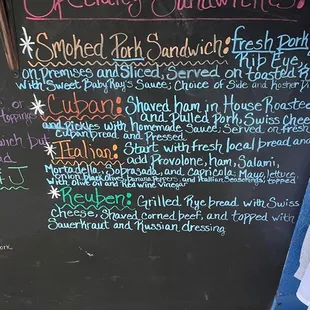 Specialty Sandwiches:
Smoked Pork Sandwich: fresh Pork
Rib Eye,
on Premises and Sliced, Served on toasted R
with Sweet Baby Ray's Sauce; Choice of Side and Kosher Di
Cuban: Shaved ham in House Roasted
and Pulled Pork, Swiss Chee
and Pickles with homemade Sauce; Served on fresh
Cuban bread and Pressed
Italian: Start with fresh local bread and
add Provolone, ham, Salami,
Mortadella, Soprasada, and Capricola: Mayo, lettuce
onion, black olives, banana peppers, and Italian Seasoning; topped
with olive oil and Red wine vinegar
Reuben: Grilled Rye bread with Swiss
Cheese, Shaved Corned beef, and topped with
Sauerkraut and Russian dressing